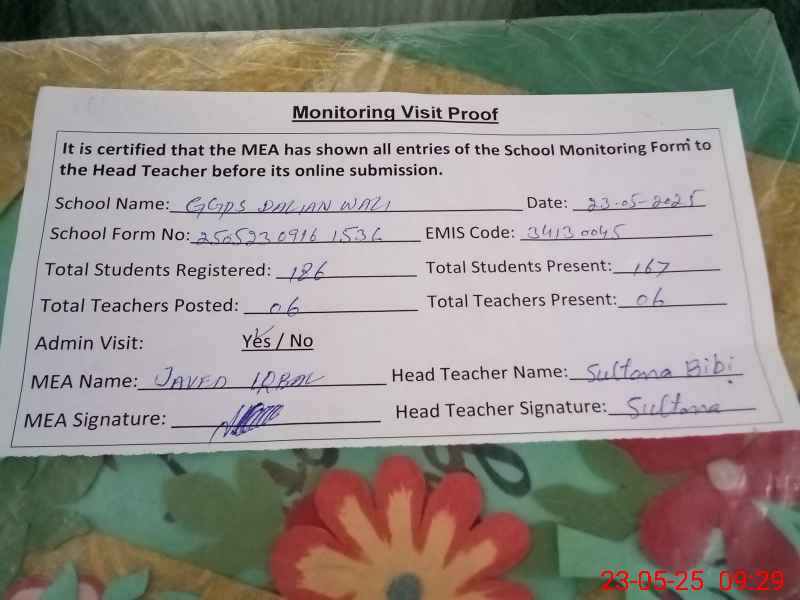 Monitoring Visit Proof
It is certified that the MEA has shown all entries of the School Monitoring Form to
the Head Teacher before its online submission.
School Name: GGPS DALIAN WALI Date: 23-05-2025
School Form No: 2505230916 1536 EMIS Code: 34130045
Total Students Registered: 186 Total Students Present: 167
Total Teachers Posted: 06 Total Teachers Present: 06
Admin Visit: Yes / No
MEA Name: JAVED IQBAL Head Teacher Name: Sultana Bibi
MEA Signature: Head Teacher Signature: Sultana
23-05-25 09:29